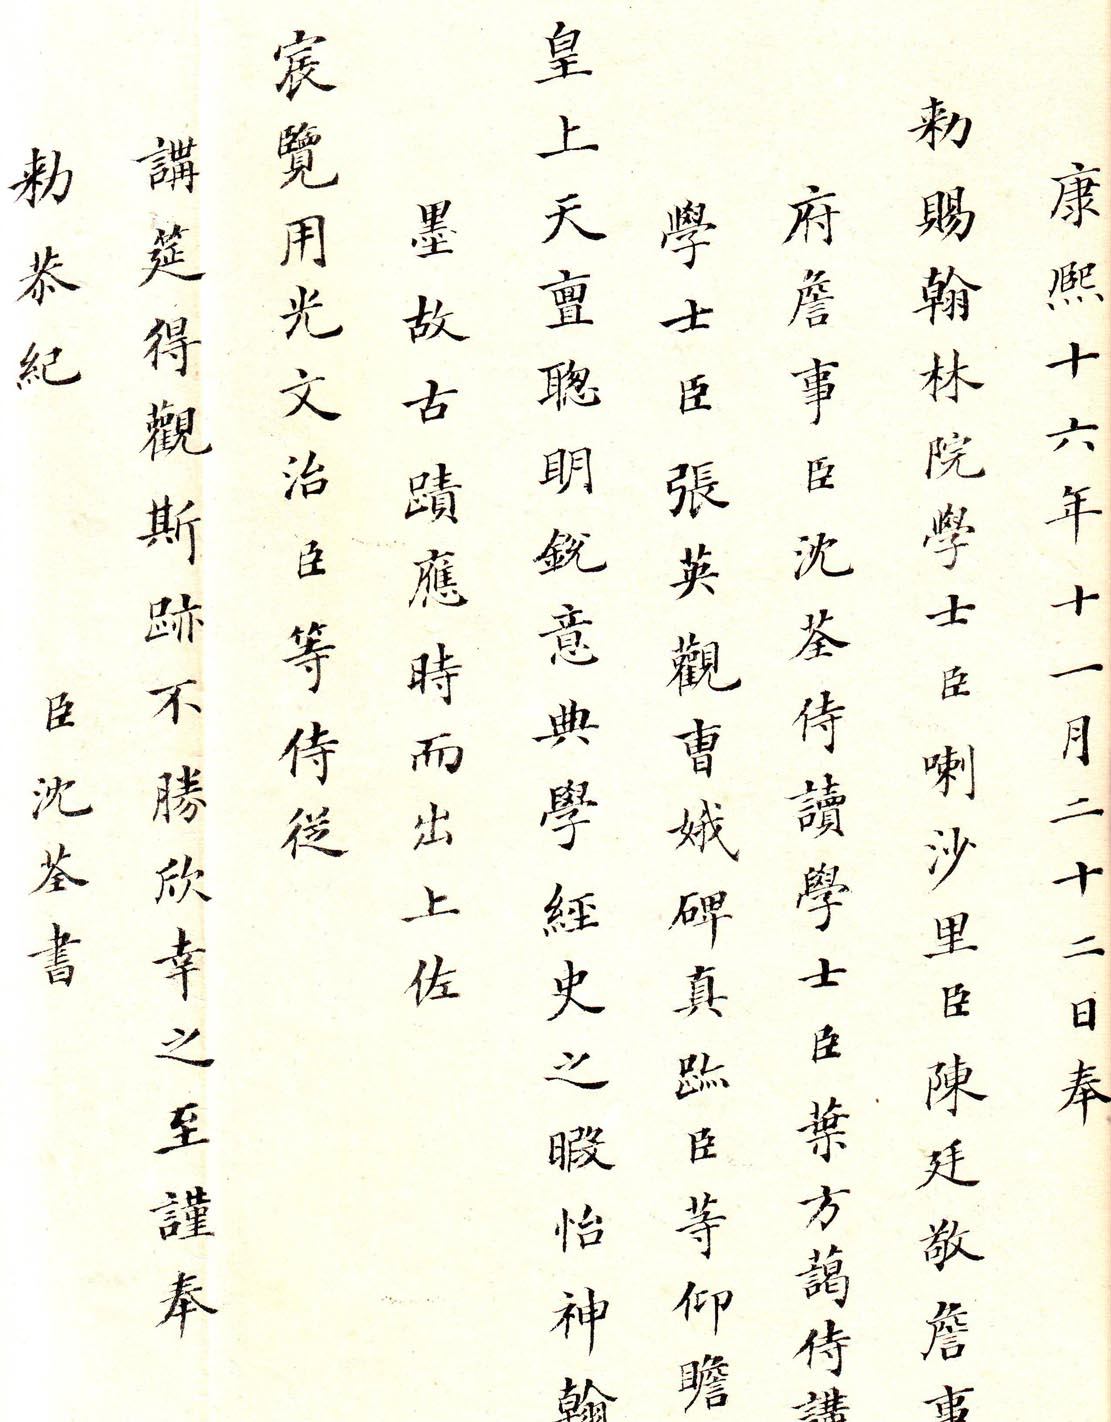 康熙十六年十一月二十二日奉
勑賜翰林院學士臣喇沙里臣陳廷敬詹事
府詹事臣沈荃侍讀學士臣葉方藹侍講
學士臣張英觀曺娥碑真跡臣等仰瞻
皇上天亶聰明銳意典學經史之暇怡神翰
墨故古蹟應時而出上佐
宸覽用光文治臣等侍從
講筵得觀斯跡不勝欣幸之至謹奉
勑恭紀　臣沈荃書